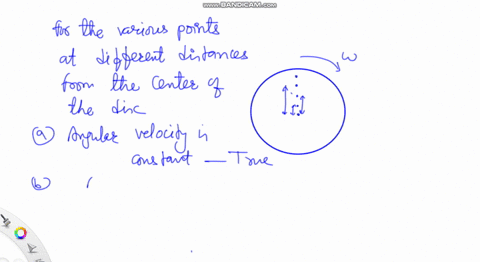 www.BANDICAM.com
for the various points
at different distances
from the center of
the disc
ω
(a) Angular velocity is
constant — True
(b)